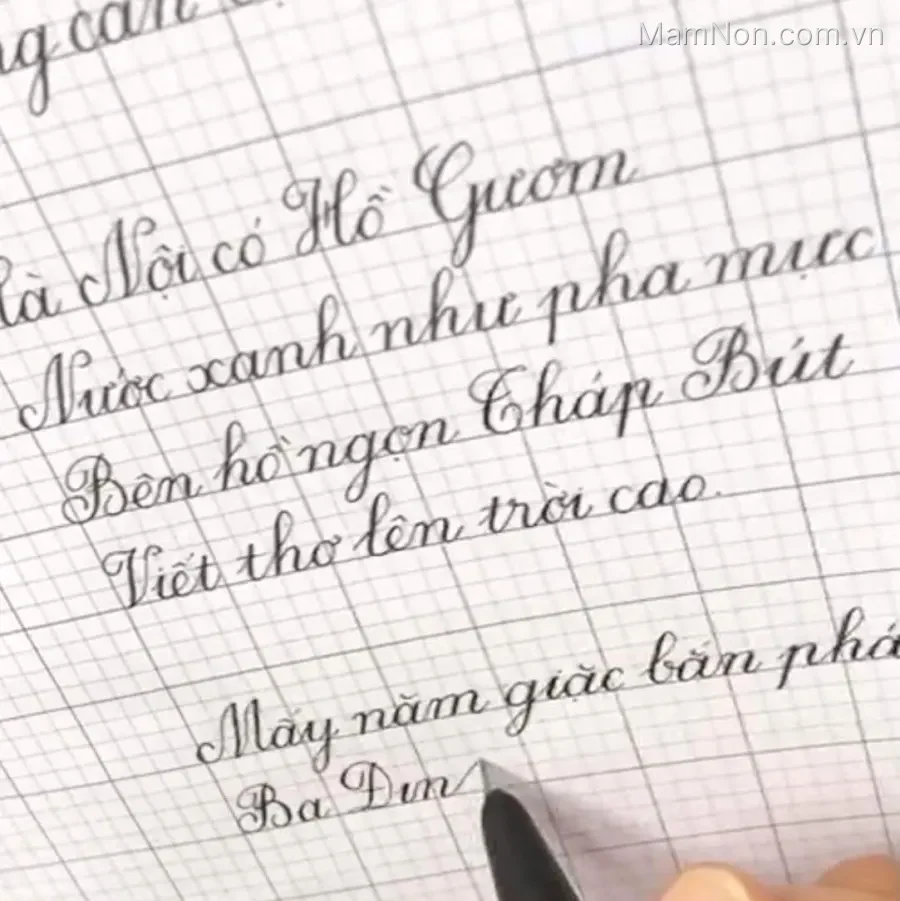 MamNon.com.vn
Nội có Hồ Gươm
Nước xanh như pha mực
Bên hồ ngọn Tháp Bút
Viết thơ lên trời cao.
Mấy năm giặc bắn phá
Ba Đin